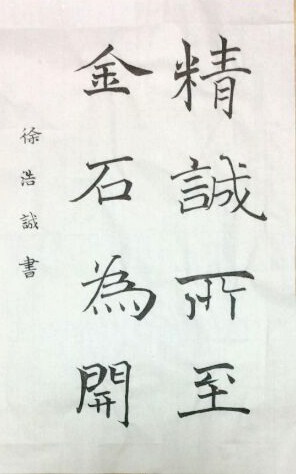 精誠所至
金石為開
徐浩誠書